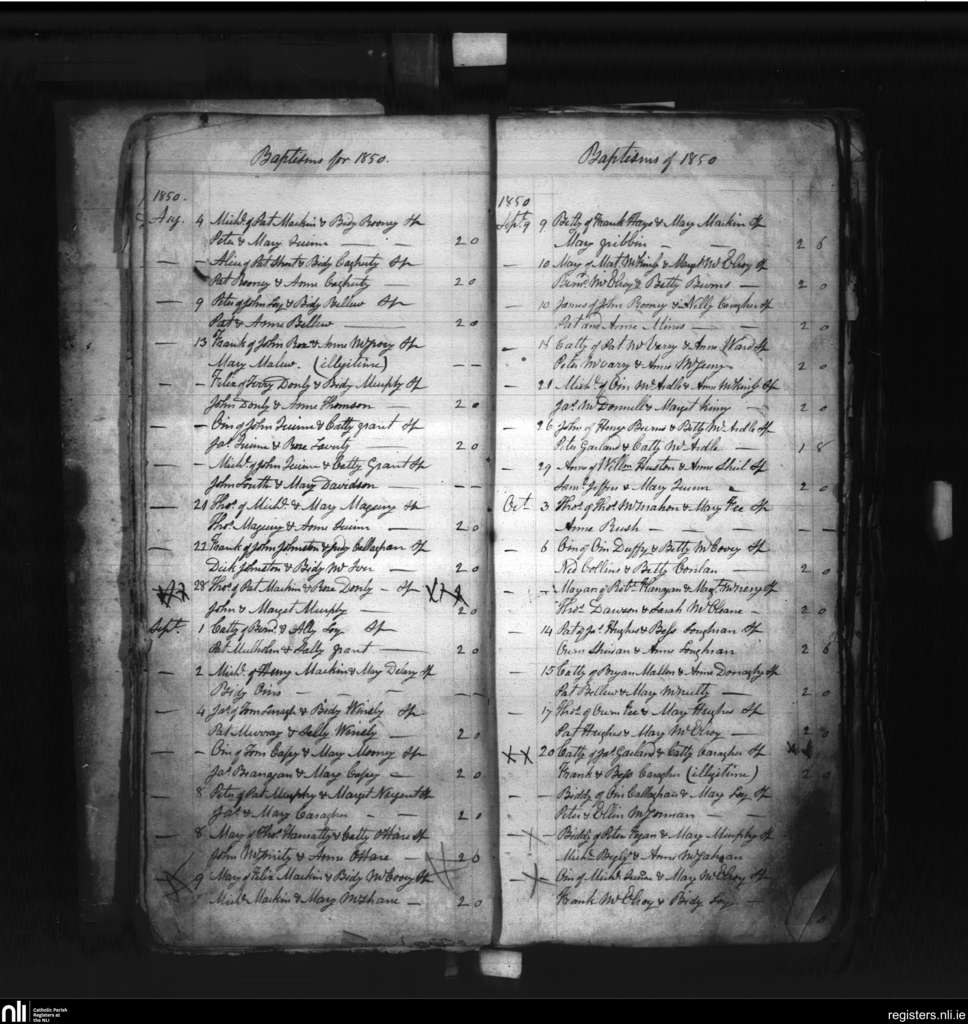 Baptisms for 1850.
1850.
Aug. 4 Michl. of Pat Mackin & Bidy Rooney Sp
Peter & Mary Quinn — — 2 0
— — Alice of Pat Short & Bidy Cagherty Sp
Pat Rooney & Anne Cagherty — 2 0
— 9 Peter of John Loy & Bidy Bellew Sp
Pat & Anne Bellew — 2 0
— 13 Frank of John & Anne McGrory Sp
Mary Malew. (illigitime) — —
— — Felix of Terry Donly & Bidy Murphy Sp
John Donly & Anne Thomson — 2 0
— — Oin of John Quinn & Catty Grant Sp
Jas. Quinn & Rose Laverty — 2 0
— — Michl. of John Quinn & Catty Grant Sp
John Smith & Mary Davidson — — —
— 21 Thos. of Michl. & Mary Maguiry Sp
Thos. Maguiry & Anne Quinn — 2 0
— 22 Frank of John Johnston & Judy Callaghan Sp
Dick Johnston & Bidy Mc Iver — 2 0
28 Thos. of Pat Mackin & Rose Donly — Sp
John & Marget Murphy — 2 0
Sept. 1 Catty of Bernd. & Ally Loy Sp
Pat Mulholm & Sally Grant — 2 0
— 2 Michl. of Henry Mackin & Mary Delany Sp
Bidy Oins — — — —
— 4 Jas. of Tom & Bidy Winsly Sp
Pat Murray & Sally Winsly — 2 0
— — Oin of Tom Casey & Mary Mooney Sp
Jas. Branagan & Mary Casey — 2 0
— 8 Peter of Pat Murphy & Marget Nugent Sp
Jas. & Mary Caragher — — 2 0
— 8 Mary of Thos. Hanratty & Catty O'Hare Sp
John McGinity & Anne O'Hare — 2 0
9 Mary of Felix Mackin & Bidy McCovey Sp
Michl. Mackin & Mary McShane — 2 0
Baptisms of 1850
1850
Sept. 9 9 Betty of Frank Hays & Mary Mackin Sp
Mary Gribbin — — 2 6
— 10 Mary of Mat. McKinly & Marget McElroy Sp
Bernd. McElroy & Betty Burns — 2 0
— 10 James of John Rooney & Nelly Caragher Sp
Pat and Anne Mines — — 2 0
— 15 Catty of Pat McVarry & Anne Ward Sp
Peter McVarry & Anne — 2 0
— 21 Michl. of Oin McArdle & Anne Sp
Jas. McDonnell & Marget Kinny — 2 0
— 26 John of Henry Burns & Betty McArdle Sp
Peter Garland & Catty McArdle 1 8
— 29 Anne of Willm. Huston & Anne Shiel Sp
Saml. Jeffers & Mary Quinn 2 0
Oct. 3 Thos. of Thos. McMahon & Mary Fee Sp
Anne Rush — — —
— 6 Oin of Oin Duffy & Betty McCovey Sp
Ned Collins & Betty Conlan — 2 0
— — Mayan of Robt. Flanagan & Margt. Sp
Thos. Dawson & Sarah McCleane — 2 0
— 14 Pat of Jas. Hughes & Bess Loughran Sp
Owen & Anne Loughran 2 6
— 15 Catty of Bryan Mallon & Anne Donaghy Sp
Pat Bellew & Mary McNulty — 2 0
— 17 Thos. of Owen Fee & Mary Hughes Sp
Pat Hughes & Mary McElroy — 2
20 Catty of Jas. Garland & Catty Caragher Sp
Frank & Bess Caragher (illigitime) 2 0
— — Biddy of Oin Callaghan & Mary Loy Sp
Peter & Ellin McGorman —
— Biddy of Peter Fegan & Mary Murphy Sp
Michl. & Anne McGahgan
— Oin of Michl. & Mary McElroy Sp
Frank McElroy & Bidy Loy —
nli
Catholic Parish
Registers at
the NLI
registers.nli.ie